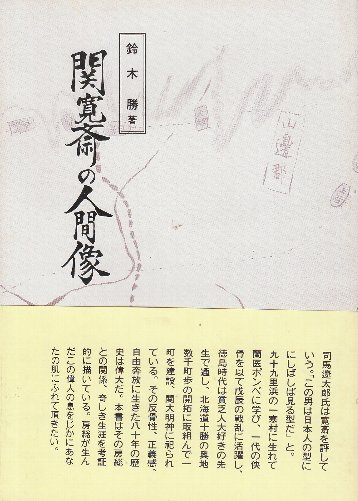 鈴木勝著
関寛斎の人間像
山邊郡
司馬遼太郎氏は寛斎を評して
いう。「この男は日本人の型に
にしばしば見る型だ」と。
九十九里浜の一寒村に生れて
蘭医ポンペに学び、一代の侠
骨を以て戊辰の戦乱に活躍し、
徳島時代は貧乏人大好きの先
生で通し、北海道十勝の奥地
数千町歩の開拓に取組んで一
町を建設、関大明神に祀られ
ている。その反骨性、正義感、
自由奔放に生きた八十年の歴
史は偉大だ。本書はその房総
との関係、奇しき生涯を考証
的に描いている。房総が生ん
だこの偉人の息をじかにあな
たの肌にふれて頂きたい。